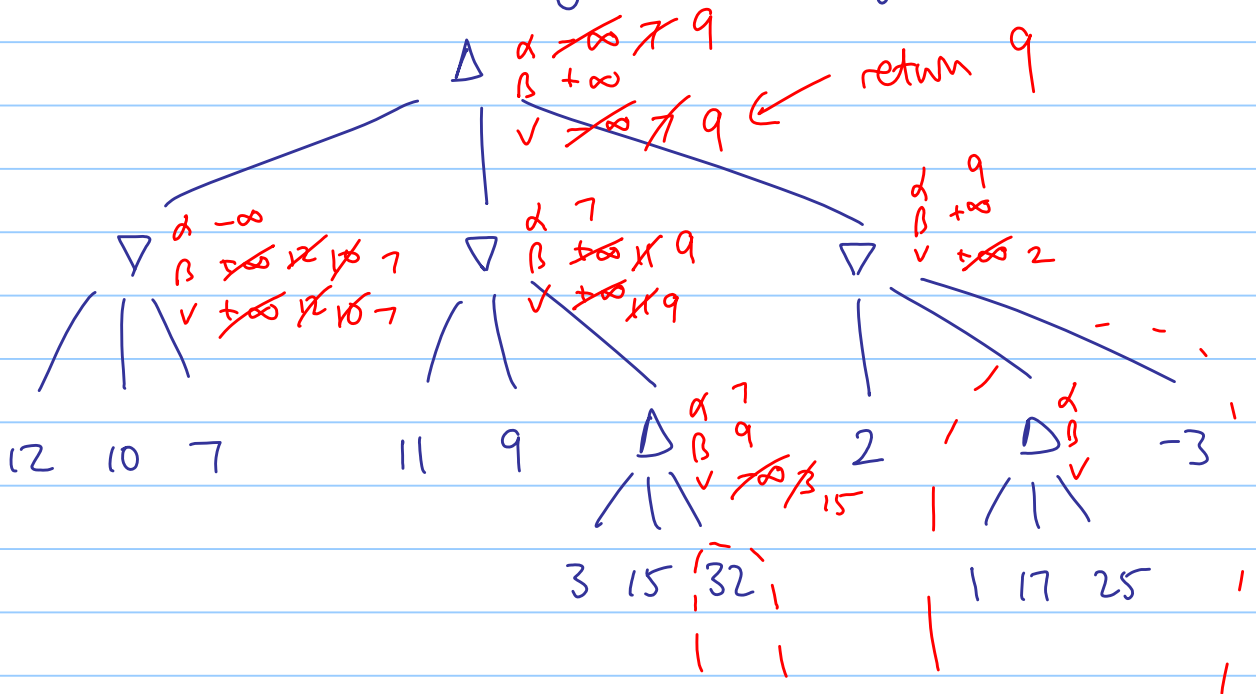 α -∞ 7 9
β +∞
v -∞ 7 9
return 9
α -∞
β +∞ 12 10 7
v +∞ 12 10 7
α 7
β +∞ 11 9
v +∞ 11 9
α 9
β +∞
v +∞ 2
12 10 7
11 9
α 7
β 9
v -∞ 3 15
2
α
β
v
-3
3 15 32
1 17 25